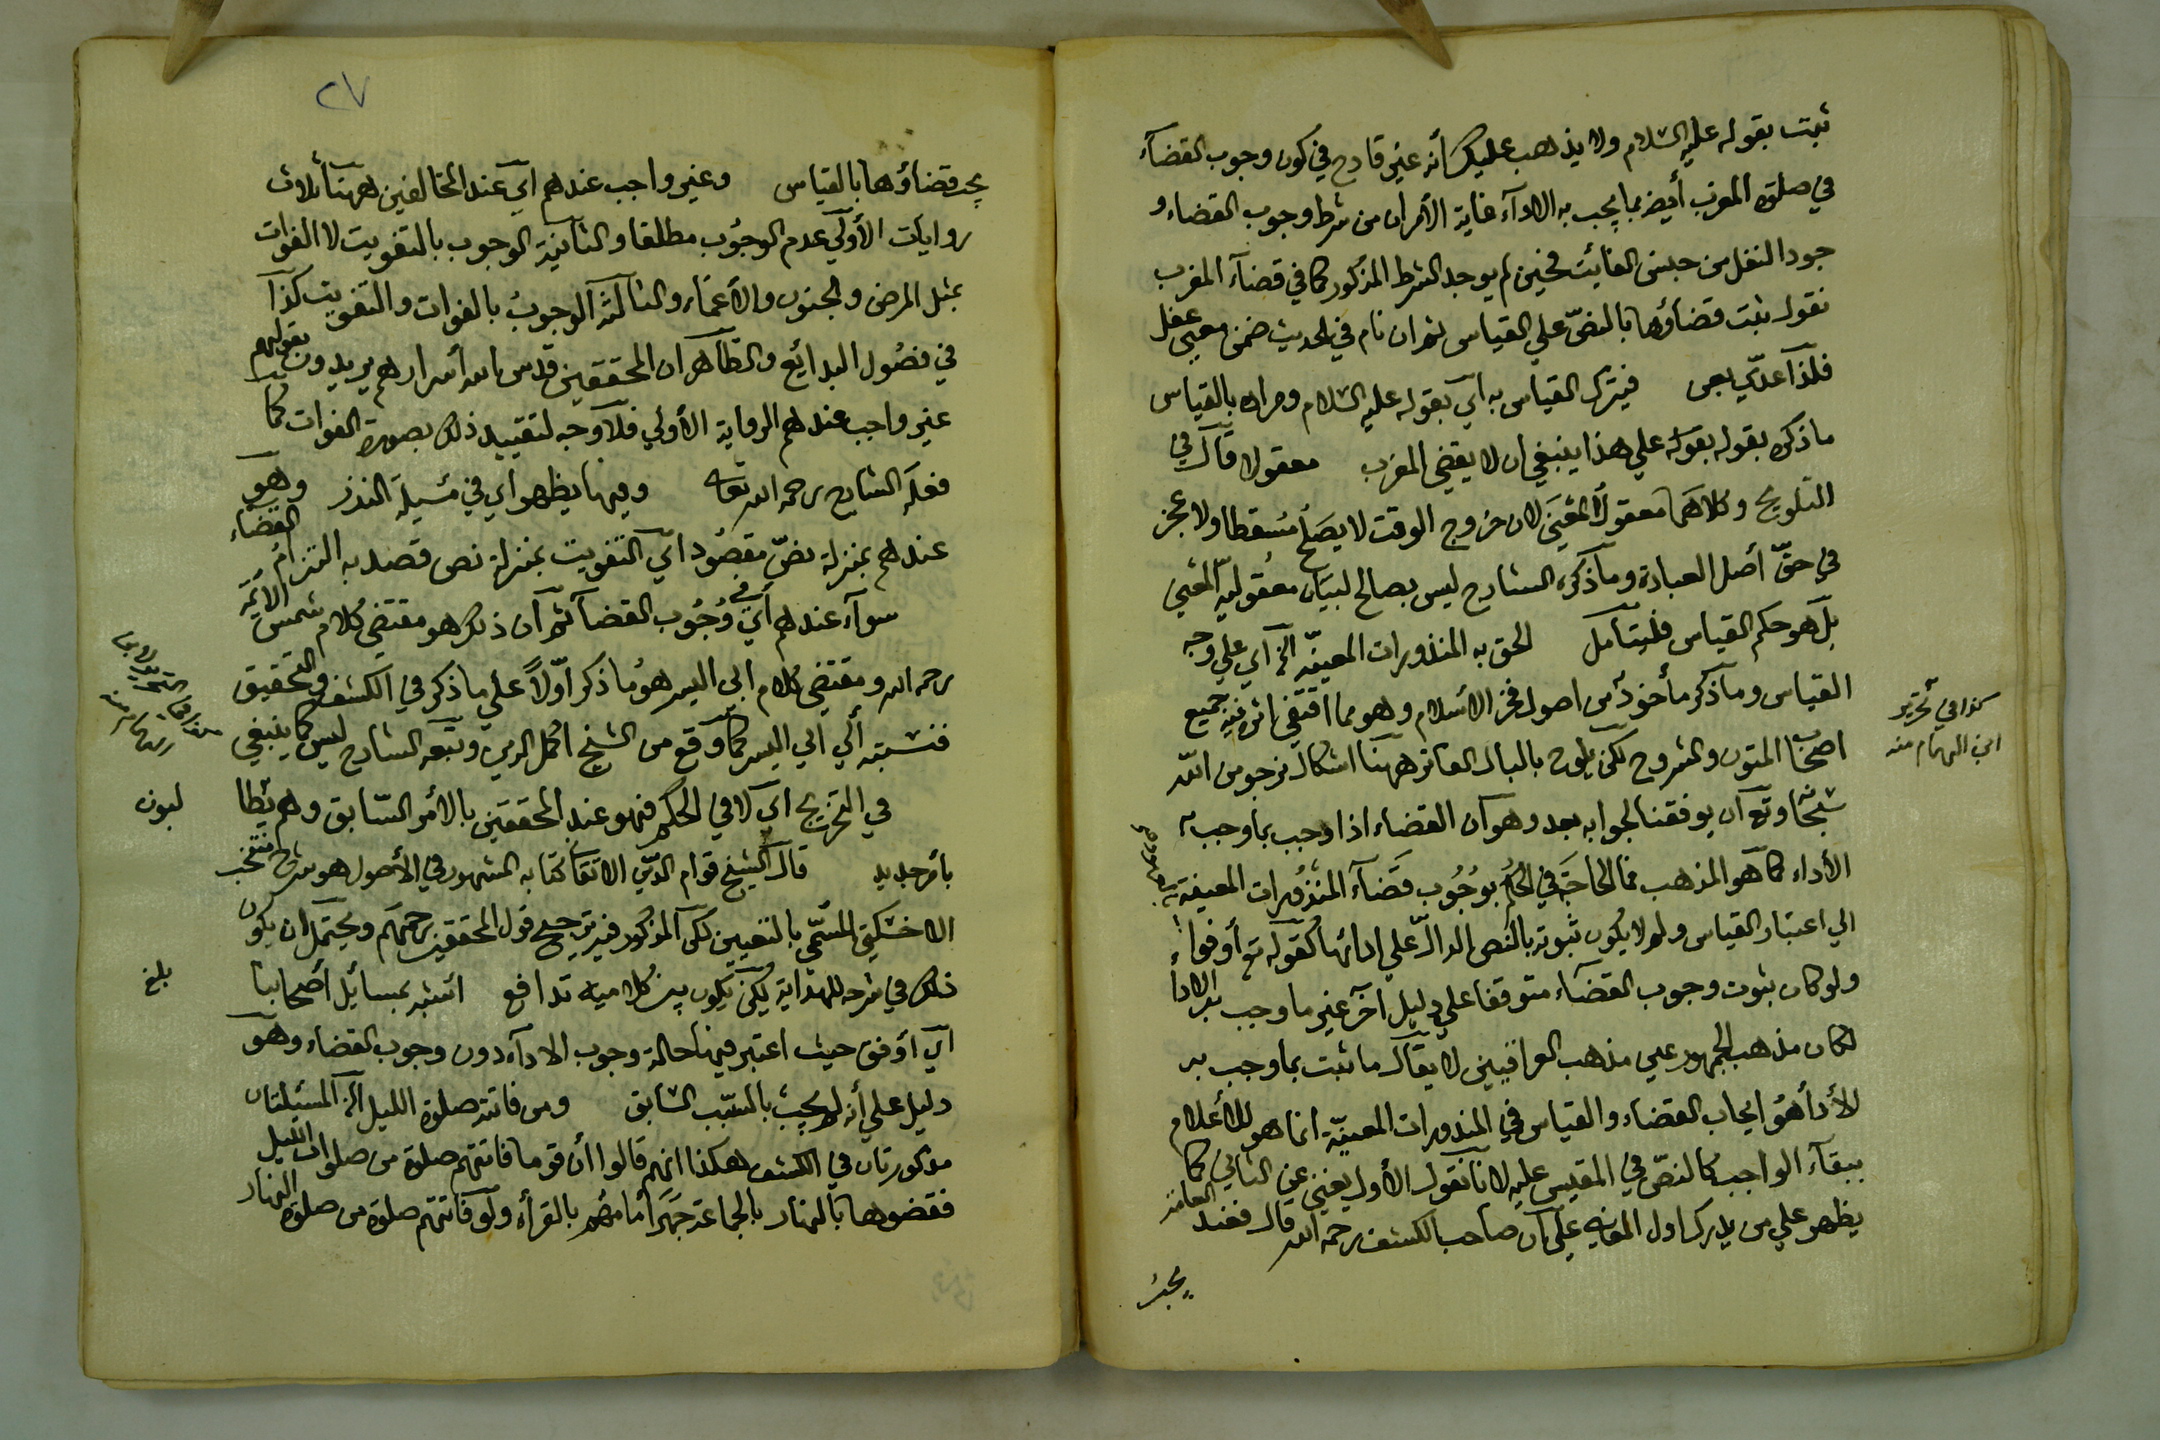 ثبت بقوله عليه السلام ولا يذهب عليك أنه غير قادح في كون وجوب القضآء
في صلوة المغرب أيضا بما يجب به الادآء غاية الأمر ان من شرط وجوب القضاء و
جود النفل من جنس الفائت فحين لم يوجد الشرط المذكور كما في قضآء المغرب
نقول ثبت قضاؤها بالنصّ علي القياس ثم ان نام في الحديث ضمن معني غفل
فلذا عدّي بعن فيترك القياس به اي بقوله عليه السلام ومراده بالقياس
ما ذكره بقوله بقوله علي هذا ينبغي ان لا يقضي المغرب معقولا قال في
التلويح وكلاهما معقول المعني لان خروج الوقت لا يصلح مسقطا ولا عجز
في حقّ أصل العبادة وما ذكره الشارح ليس بصالح لبيان معقوليّة المعني
بل هو حكم القياس فليتأمل الحق به المنذورات المعينة الخ اي علي وجه
القياس وما ذكر مأخوذ من اصول فخر الاسلام وهو مما اقتفي اثره فيه جميع
اصحاب المتون والشروح لكن يلوح بالبال الفاتر ههنا اشكال نرجو من الله
وتع ان يوفقنا لجوابه بعد وهو ان القضاء اذا وجب بما وجب به
الأداء كما هو المذهب فما الحاجة في الحكم بوجوب قضآء المنذورات المعينة
الي اعتبار القياس ولم لا يكون ثبوته بالنص الدالّ علي ادائها كقوله تع أوفوا
ولو كان ثبوت وجوب القضآء متوقفا علي دليل آخر غير ما وجب به الادأ
لكان مذهب الجمهور عين مذهب العراقيين لا يقال ما ثبت بما وجب به
الأدأ هو ايجاب القضاء والقياس في المنذورات المعينة انما هو للأعلام
ببقآء الواجب كالنصّ في المقيس عليه لانا نقول الأول يغني عن الثاني كما
يظهر علي من يدرك اول المعاني علي ان صاحب الكشف رحمه الله قال فعند العامة
يجب
كذا في تحرير
ابن الهمام منه
٢٧
يجب قضاؤها بالقياس وغير واجب عندهم اي عند المخالفين ههنا ثلاث
روايات الأولي عدم الوجوب مطلقا والثانية الوجوب بالتفويت لا الفوات
بمثل المرض والجنون والأغماء والثالثة الوجوب بالفوات والتفويت كذا
في فصول البدايع والظاهر ان المحققين قدس الله أسرارهم يريدون بقولهم
غير واجب عندهم الرواية الأولي فلا وجه لتقييد ذلك بصورة الفوات كما
فعله الشارح رحمه الله تعالي وفيها يظهر اي في مسئلة النذر وهو
عندهم بمنزلة نصّ مقصود اي التفويت بمنزلة نص قصد به التزام القضاء
سوآء عندهم أي في وجوب القضآ ثم ان ذلك هو مقتضي كلام شمس الائمة
رحمه الله ومقتضي كلام ابي اليسر هو ما ذكر اوّلاً علي ما ذكر في الكشف والتحقيق
فنسبته الي ابي اليسر كما وقع من الشيخ اكمل الدين وتبعه الشارح ليس كما ينبغي
في التخريج اي لا في الحكم فهو عند المحققين بالامر السّابق وهم
بأمر جديد قال الشيخ قوام الدّين الاتقا كتابه المشهور في الأصول هو شرح منتخب
الاخسكيتي المسمّي بالتبيين لكن المذكور فيه ترجيح قول المحققين رحمهم ويحتمل ان يكون
ذلك في شرحه للهداية لكن يكون بين كلاميه تدافع اشبه بمسائل أصحابنا
اي أوفق حيث اعتبر فيها حالة وجوب الادآء دون وجوب القضاء وهو
دليل علي أنه لم يجب بالسبب السابق ومن فاتته صلوة الليل الخ المسئلتان
مذكورتان في الكشف هكذا انهم قالوا أن قوما فاتتهم صلوة من صلوات الليل
فقضوها بالنهار بالجماعة جهر أمامهم بالقرأة ولو فاتتهم صلوة من صلوة النهار
بلغ